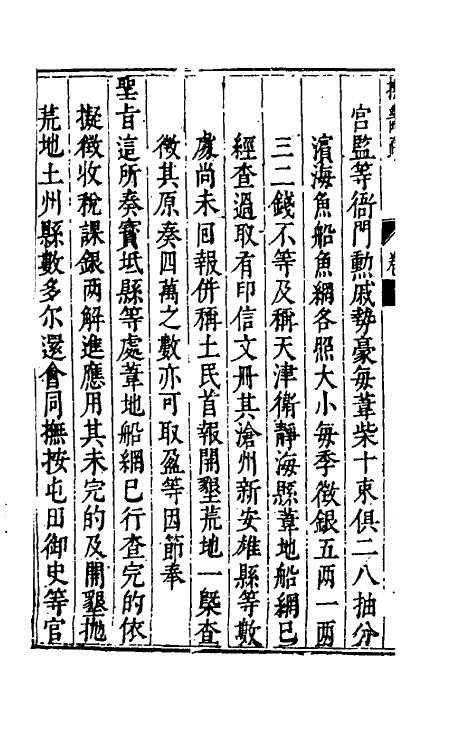 宮監等衙門勲戚勢豪每葦柴十束俱二八抽分
濵海魚船魚網各照大小每季徵銀五两一两
三二錢不等及稱天津衛靜海縣葦地船網已
經查過取有印信文冊其滄州新安雄縣等數
處尚未囘報併稱土民首報開墾荒地一槩查
徵其原奏四萬之數亦可取盈等因節奉
聖旨這所奏寳坻縣等處葦地船網已行查完的依
擬徵收稅課銀两解進應用其未完的及開墾抛
荒地土州縣數多尓還會同撫按屯田御史等官